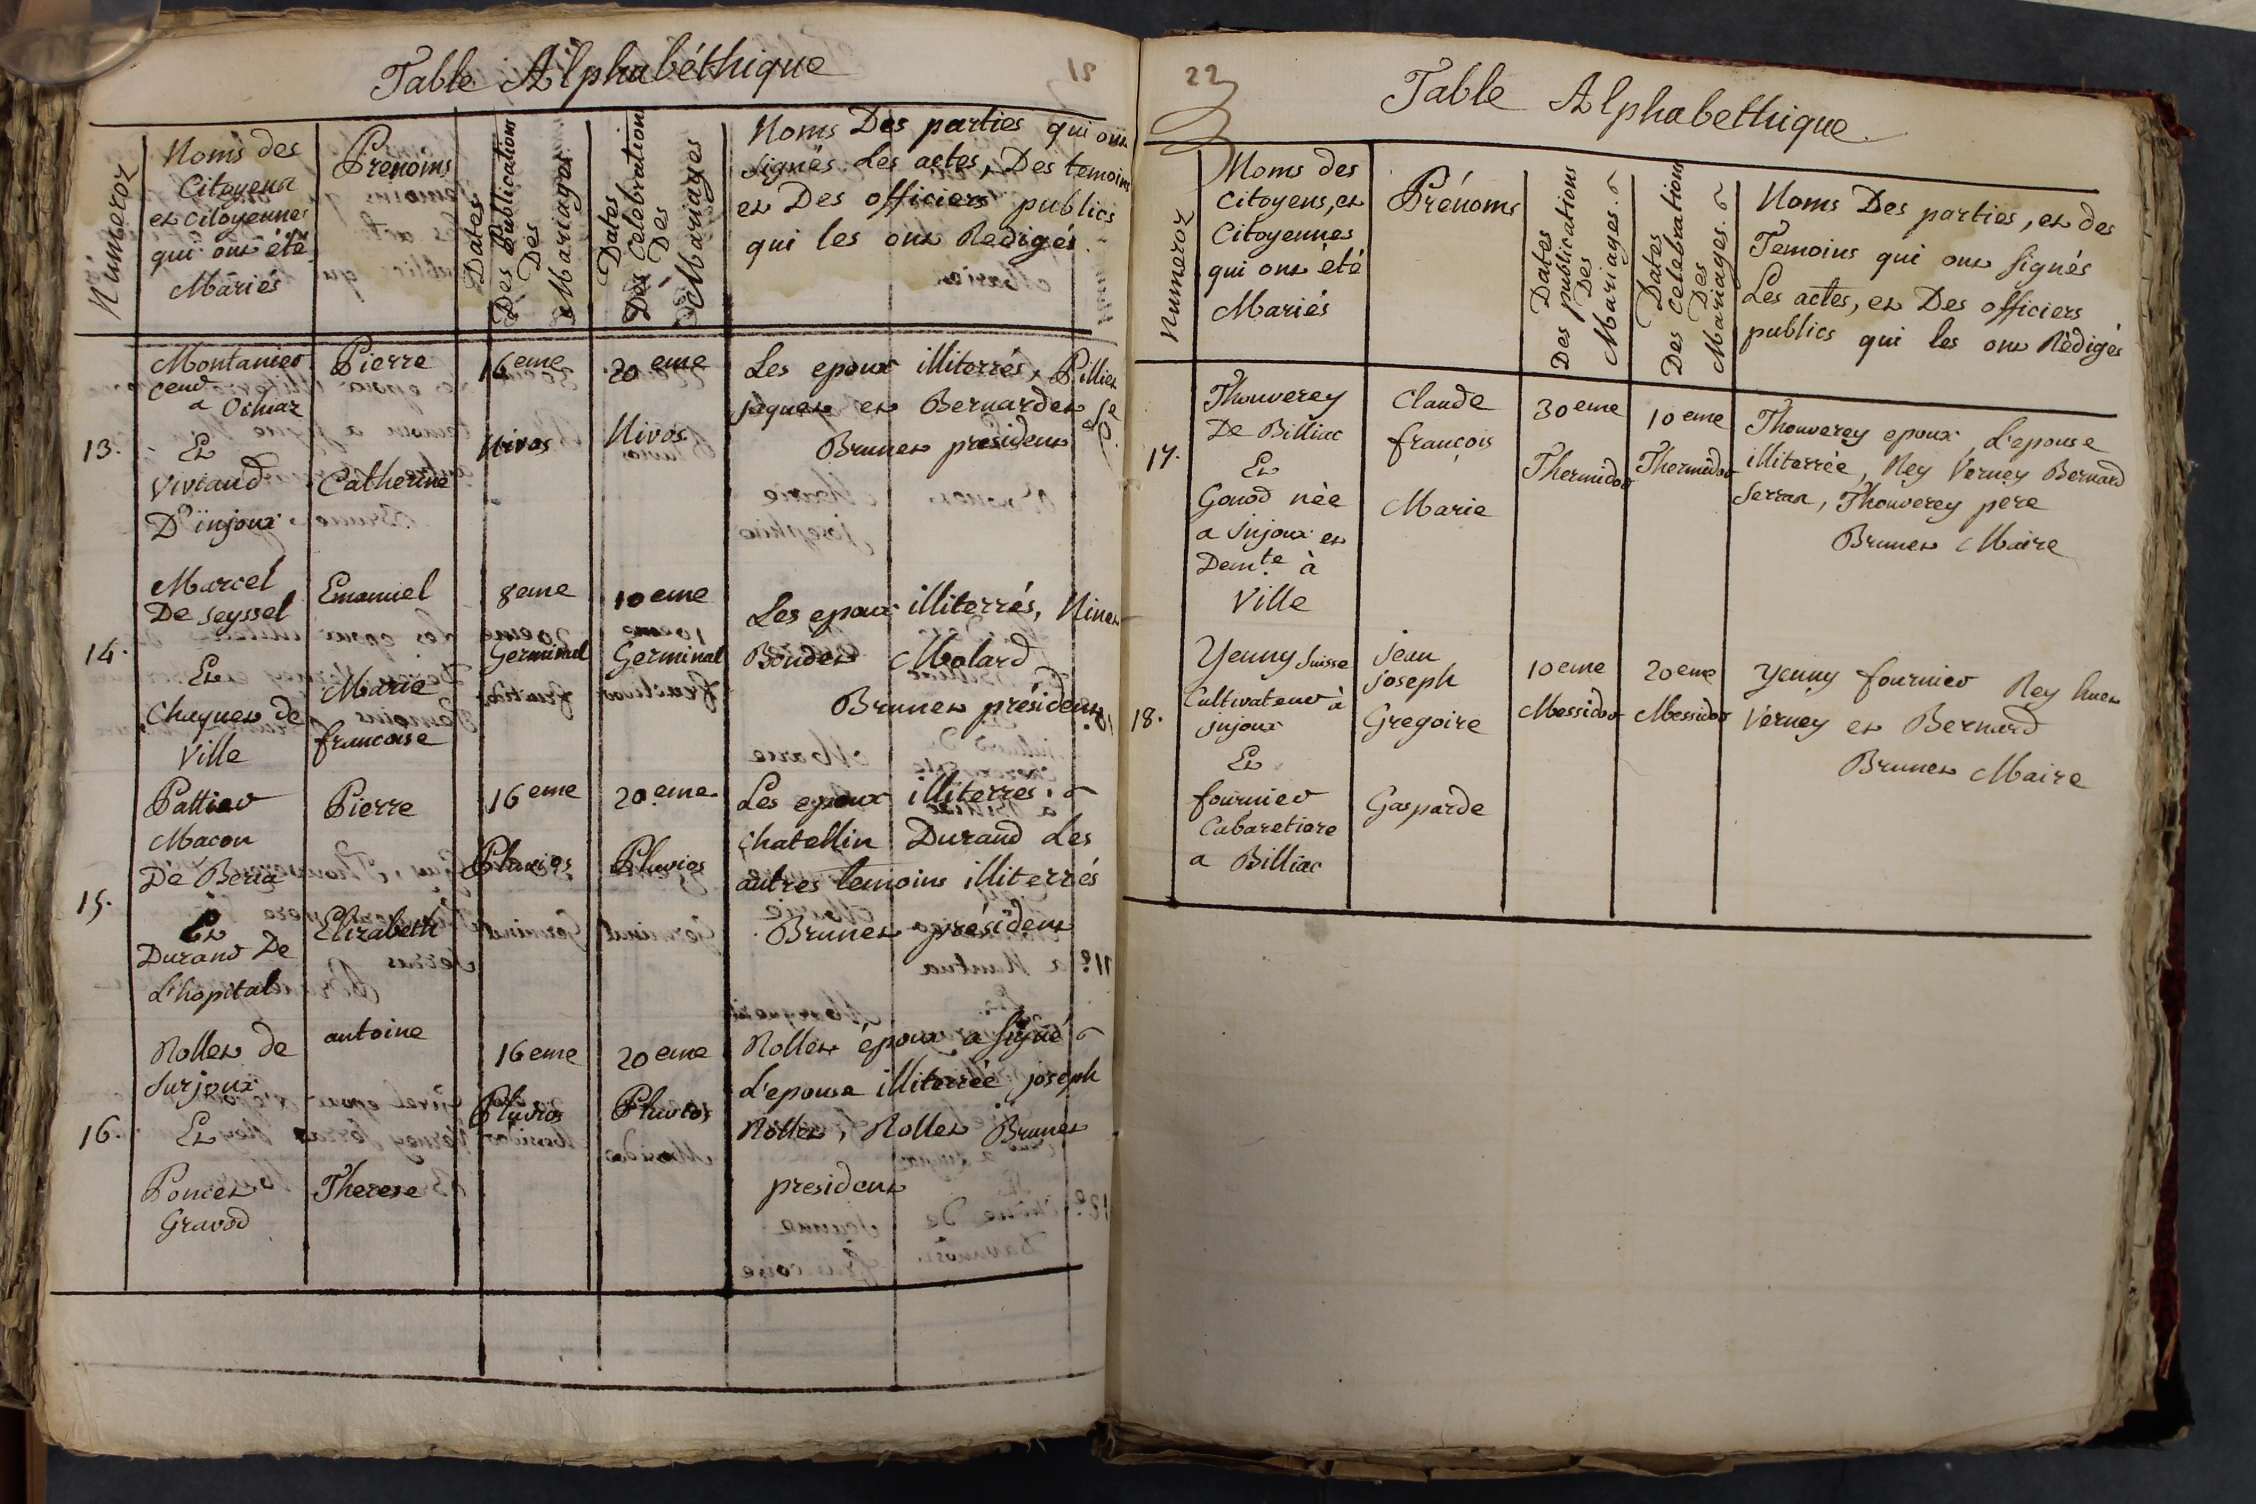 Table Alphabéthique
Numeroz
Noms des
Citoyens
et citoyennes
qui ont été
Mariés
Prenoms
Dates
Des Publications
Des
Mariages
Dates
Des Celebrations
Des
Mariages
Noms Des parties qui ont
signés Les actes, Des temoins
et Des officiers publics
qui les ont Redigés
13.
Montanier
Et
Viviand
D'injoux
Pierre
Catherine
16eme
Nivos
20eme
Nivos
Les epoux illiterrés, Pilliet
jaquet et Bernardet
Brunet president
14.
Marcel
De Seyssel
Et
de
Ville
Emanuel
Marie
francoise
8eme
Germinal
10eme
Germinal
Les epoux illiterrés, Ninet
Boudet Molard
Brunet président
15.
Pattier
Macon
De
Et
Durand De
L'hopital
Pierre
Elizabeth
16eme
Pluvios
20eme
Pluvios
Les epoux illiterrés
Chatellin Durand Les
autres temoins illiterrés
Brunet président
16.
Rollet de
Surjoux
Et
Poncet
Gravod
antoine
Therese
16eme
Pluvios
20eme
Pluvios
Rollet époux a signé
L'epouse illiterrée joseph
Rollet, Rollet Brunet
president
22
Table Alphabethique
Numeroz
Noms des
Citoyens, et
Citoyennes
qui ont été
Mariés
Prénoms
Dates
Des publications
Des
Mariages.
Dates
Des Celebrations
Des
Mariages.
Noms Des parties, et des
Temoins qui ont signés
Les actes, et Des officiers
publics qui les ont Rédigés
17.
Thouverey
De Billiac
Et
Gonod née
a Injoux et
Demte à
Ville
Claude
françois
Marie
30eme
Thermidor
10eme
Thermidor
Thouverey epoux L'epouse
illiterrée, Rey Verney Bernard
Serras, Thouverey pere
Brunet Maire
18.
Yenny Suisse
Cultivateur à
Injoux
Et
fournier
Cabaretiere
a Billiac
jean
joseph
Gregoire
Gasparde
10eme
Messidor
20eme
Messidor
Yenny fournier Rey huet
Verney et Bernard
Brunet Maire